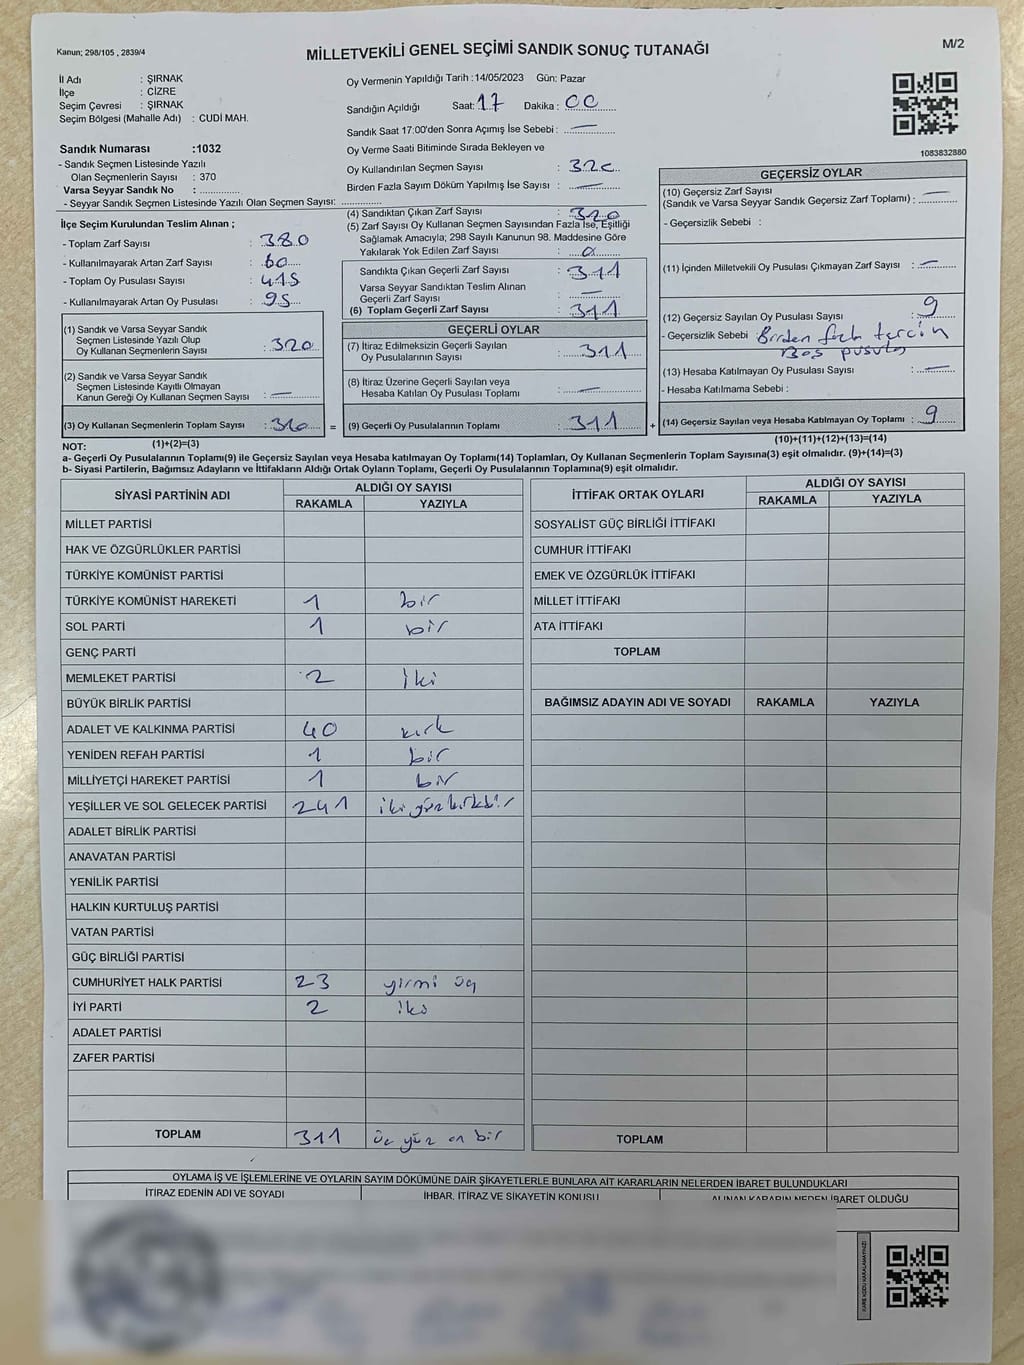 Kanun; 298/105 , 2839/4
MİLLETVEKİLİ GENEL SEÇİMİ SANDIK SONUÇ TUTANAĞI
M/2
İl Adı : ŞIRNAK
İlçe : CİZRE
Seçim Çevresi : ŞIRNAK
Seçim Bölgesi (Mahalle Adı) : CUDİ MAH.
Sandık Numarası :1032
- Sandık Seçmen Listesinde Yazılı
Olan Seçmenlerin Sayısı : 370
Varsa Seyyar Sandık No :
- Seyyar Sandık Seçmen Listesinde Yazılı Olan Seçmen Sayısı:
Oy Vermenin Yapıldığı Tarih :14/05/2023 Gün: Pazar
Sandığın Açıldığı Saat: 17 Dakika : 00
Sandık Saat 17:00'den Sonra Açımış İse Sebebi : —
Oy Verme Saati Bitiminde Sırada Bekleyen ve
Oy Kullandırılan Seçmen Sayısı : 320
Birden Fazla Sayım Döküm Yapılmış İse Sayısı : —
1083832880
İlçe Seçim Kurulundan Teslim Alınan ;
- Toplam Zarf Sayısı : 380
- Kullanılmayarak Artan Zarf Sayısı : 60
- Toplam Oy Pusulası Sayısı : 415
- Kullanılmayarak Artan Oy Pusulası : 95
(1) Sandık ve Varsa Seyyar Sandık
Seçmen Listesinde Yazılı Olup
Oy Kullanan Seçmenlerin Sayısı : 320
(2) Sandık ve Varsa Seyyar Sandık
Seçmen Listesinde Kayıtlı Olmayan
Kanun Gereği Oy Kullanan Seçmen Sayısı : —
(3) Oy Kullanan Seçmenlerin Toplam Sayısı : 320 =
(4) Sandıktan Çıkan Zarf Sayısı : 320
(5) Zarf Sayısı Oy Kullanan Seçmen Sayısından Fazla İse, Eşitliği
Sağlamak Amacıyla; 298 Sayılı Kanunun 98. Maddesine Göre
Yakılarak Yok Edilen Zarf Sayısı : 0
Sandıkta Çıkan Geçerli Zarf Sayısı : 311
Varsa Seyyar Sandıktan Teslim Alınan
Geçerli Zarf Sayısı : —
(6) Toplam Geçerli Zarf Sayısı : 311
GEÇERLİ OYLAR
(7) İtiraz Edilmeksizin Geçerli Sayılan
Oy Pusulalarının Sayısı : 311
(8) İtiraz Üzerine Geçerli Sayılan veya
Hesaba Katılan Oy Pusulası Toplamı : —
(9) Geçerli Oy Pusulalarının Toplamı : 311 +
GEÇERSİZ OYLAR
(10) Geçersiz Zarf Sayısı
(Sandık ve Varsa Seyyar Sandık Geçersiz Zarf Toplamı) : —
- Geçersizlik Sebebi :
(11) İçinden Milletvekili Oy Pusulası Çıkmayan Zarf Sayısı : —
(12) Geçersiz Sayılan Oy Pusulası Sayısı : 9
- Geçersizlik Sebebi : Birden fazla tercih
Boş pusula
(13) Hesaba Katılmayan Oy Pusulası Sayısı : —
- Hesaba Katılmama Sebebi :
(14) Geçersiz Sayılan veya Hesaba Katılmayan Oy Toplamı : 9
NOT: (1)+(2)=(3)
(10)+(11)+(12)+(13)=(14)
a- Geçerli Oy Pusulalarının Toplamı(9) ile Geçersiz Sayılan veya Hesaba katılmayan Oy Toplamı(14) Toplamları, Oy Kullanan Seçmenlerin Toplam Sayısına(3) eşit olmalıdır. (9)+(14)=(3)
b- Siyasi Partilerin, Bağımsız Adayların ve İttifakların Aldığı Ortak Oyların Toplamı, Geçerli Oy Pusulalarının Toplamına(9) eşit olmalıdır.
SİYASİ PARTİNİN ADI ALDIĞI OY SAYISI
RAKAMLA YAZIYLA
MİLLET PARTİSİ
HAK VE ÖZGÜRLÜKLER PARTİSİ
TÜRKİYE KOMÜNİST PARTİSİ
TÜRKİYE KOMÜNİST HAREKETİ 1 bir
SOL PARTİ 1 bir
GENÇ PARTİ
MEMLEKET PARTİSİ 2 iki
BÜYÜK BİRLİK PARTİSİ
ADALET VE KALKINMA PARTİSİ 40 kırk
YENİDEN REFAH PARTİSİ 1 bir
MİLLİYETÇİ HAREKET PARTİSİ 1 bir
YEŞİLLER VE SOL GELECEK PARTİSİ 241 iki yüz kırkbir
ADALET BİRLİK PARTİSİ
ANAVATAN PARTİSİ
YENİLİK PARTİSİ
HALKIN KURTULUŞ PARTİSİ
VATAN PARTİSİ
GÜÇ BİRLİĞİ PARTİSİ
CUMHURİYET HALK PARTİSİ 23 yirmi üç
İYİ PARTİ 2 iki
ADALET PARTİSİ
ZAFER PARTİSİ
TOPLAM 311 üç yüz on bir
İTTİFAK ORTAK OYLARI ALDIĞI OY SAYISI
RAKAMLA YAZIYLA
SOSYALİST GÜÇ BİRLİĞİ İTTİFAKI
CUMHUR İTTİFAKI
EMEK VE ÖZGÜRLÜK İTTİFAKI
MİLLET İTTİFAKI
ATA İTTİFAKI
TOPLAM
BAĞIMSIZ ADAYIN ADI VE SOYADI RAKAMLA YAZIYLA
TOPLAM
OYLAMA İŞ VE İŞLEMLERİNE VE OYLARIN SAYIM DÖKÜMÜNE DAİR ŞİKAYETLERLE BUNLARA AİT KARARLARIN NELERDEN İBARET BULUNDUKLARI
İTİRAZ EDENİN ADI VE SOYADI İHBAR, İTİRAZ VE ŞİKAYETİN KONUSU ALINAN KARARIN NEDEN İBARET OLDUĞU
KARE KODU KARALAMAYINIZ!